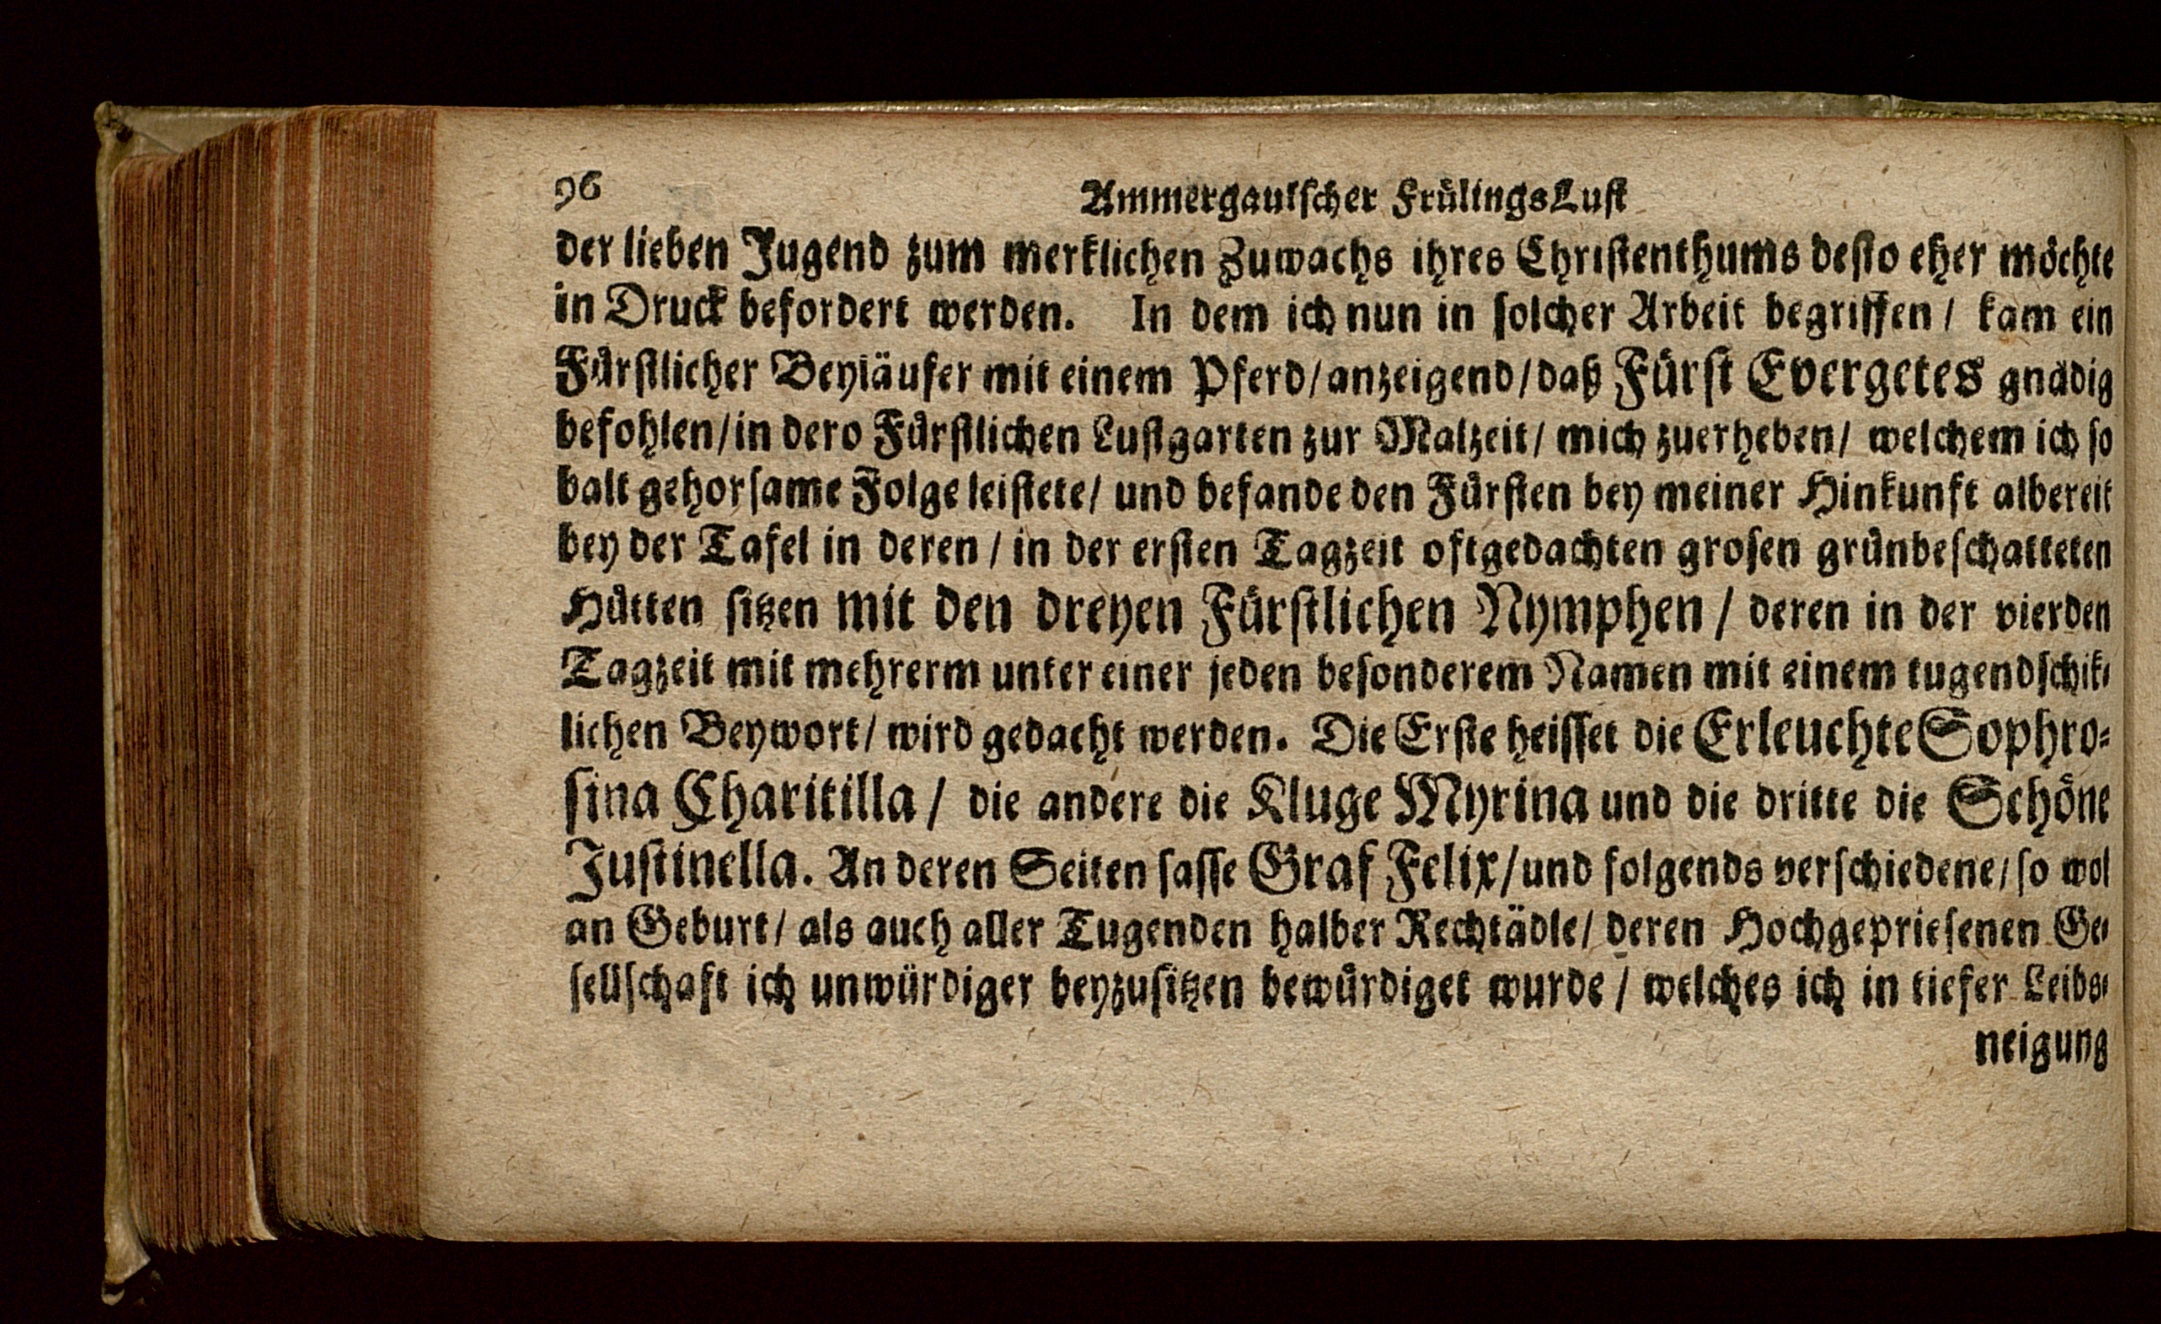 96 Ammergauischer FrülingsLust
der lieben Jugend zum merklichen Zuwachs ihres Christenthums desto eher möchte
in Druck befordert werden. In dem ich nun in solcher Arbeit begriffen / kam ein
Fürstlicher Beyläufer mit einem Pferd / anzeigend / daß Fürst Evergetes gnädig
befohlen / in dero Fürstlichen Lustgarten zur Malzeit / mich zuerheben / welchem ich so
balt gehorsame Folge leistete / und befande den Fürsten bey meiner Hinkunft albereit
bey der Tafel in deren / in der ersten Tagzeit oftgedachten grosen grünbeschatteten
Hütten sitzen mit den dreyen Fürstlichen Nymphen / deren in der vierden
Tagzeit mit mehrerm unter einer jeden besonderem Namen mit einem tugendschik-
lichen Beywort / wird gedacht werden. Die Erste heisset die Erleuchte Sophro-
sina Charitilla / die andere die Kluge Myrina und die dritte die Schöne
Justinella. An deren Seiten sasse Graf Felix / und folgends verschiedene / so wol
an Geburt / als auch aller Tugenden halber Rechtädle / deren Hochgepriesenen Ge-
sellschaft ich unwürdiger beyzusitzen bewürdiget wurde / welches ich in tiefer Leibs-
neigung